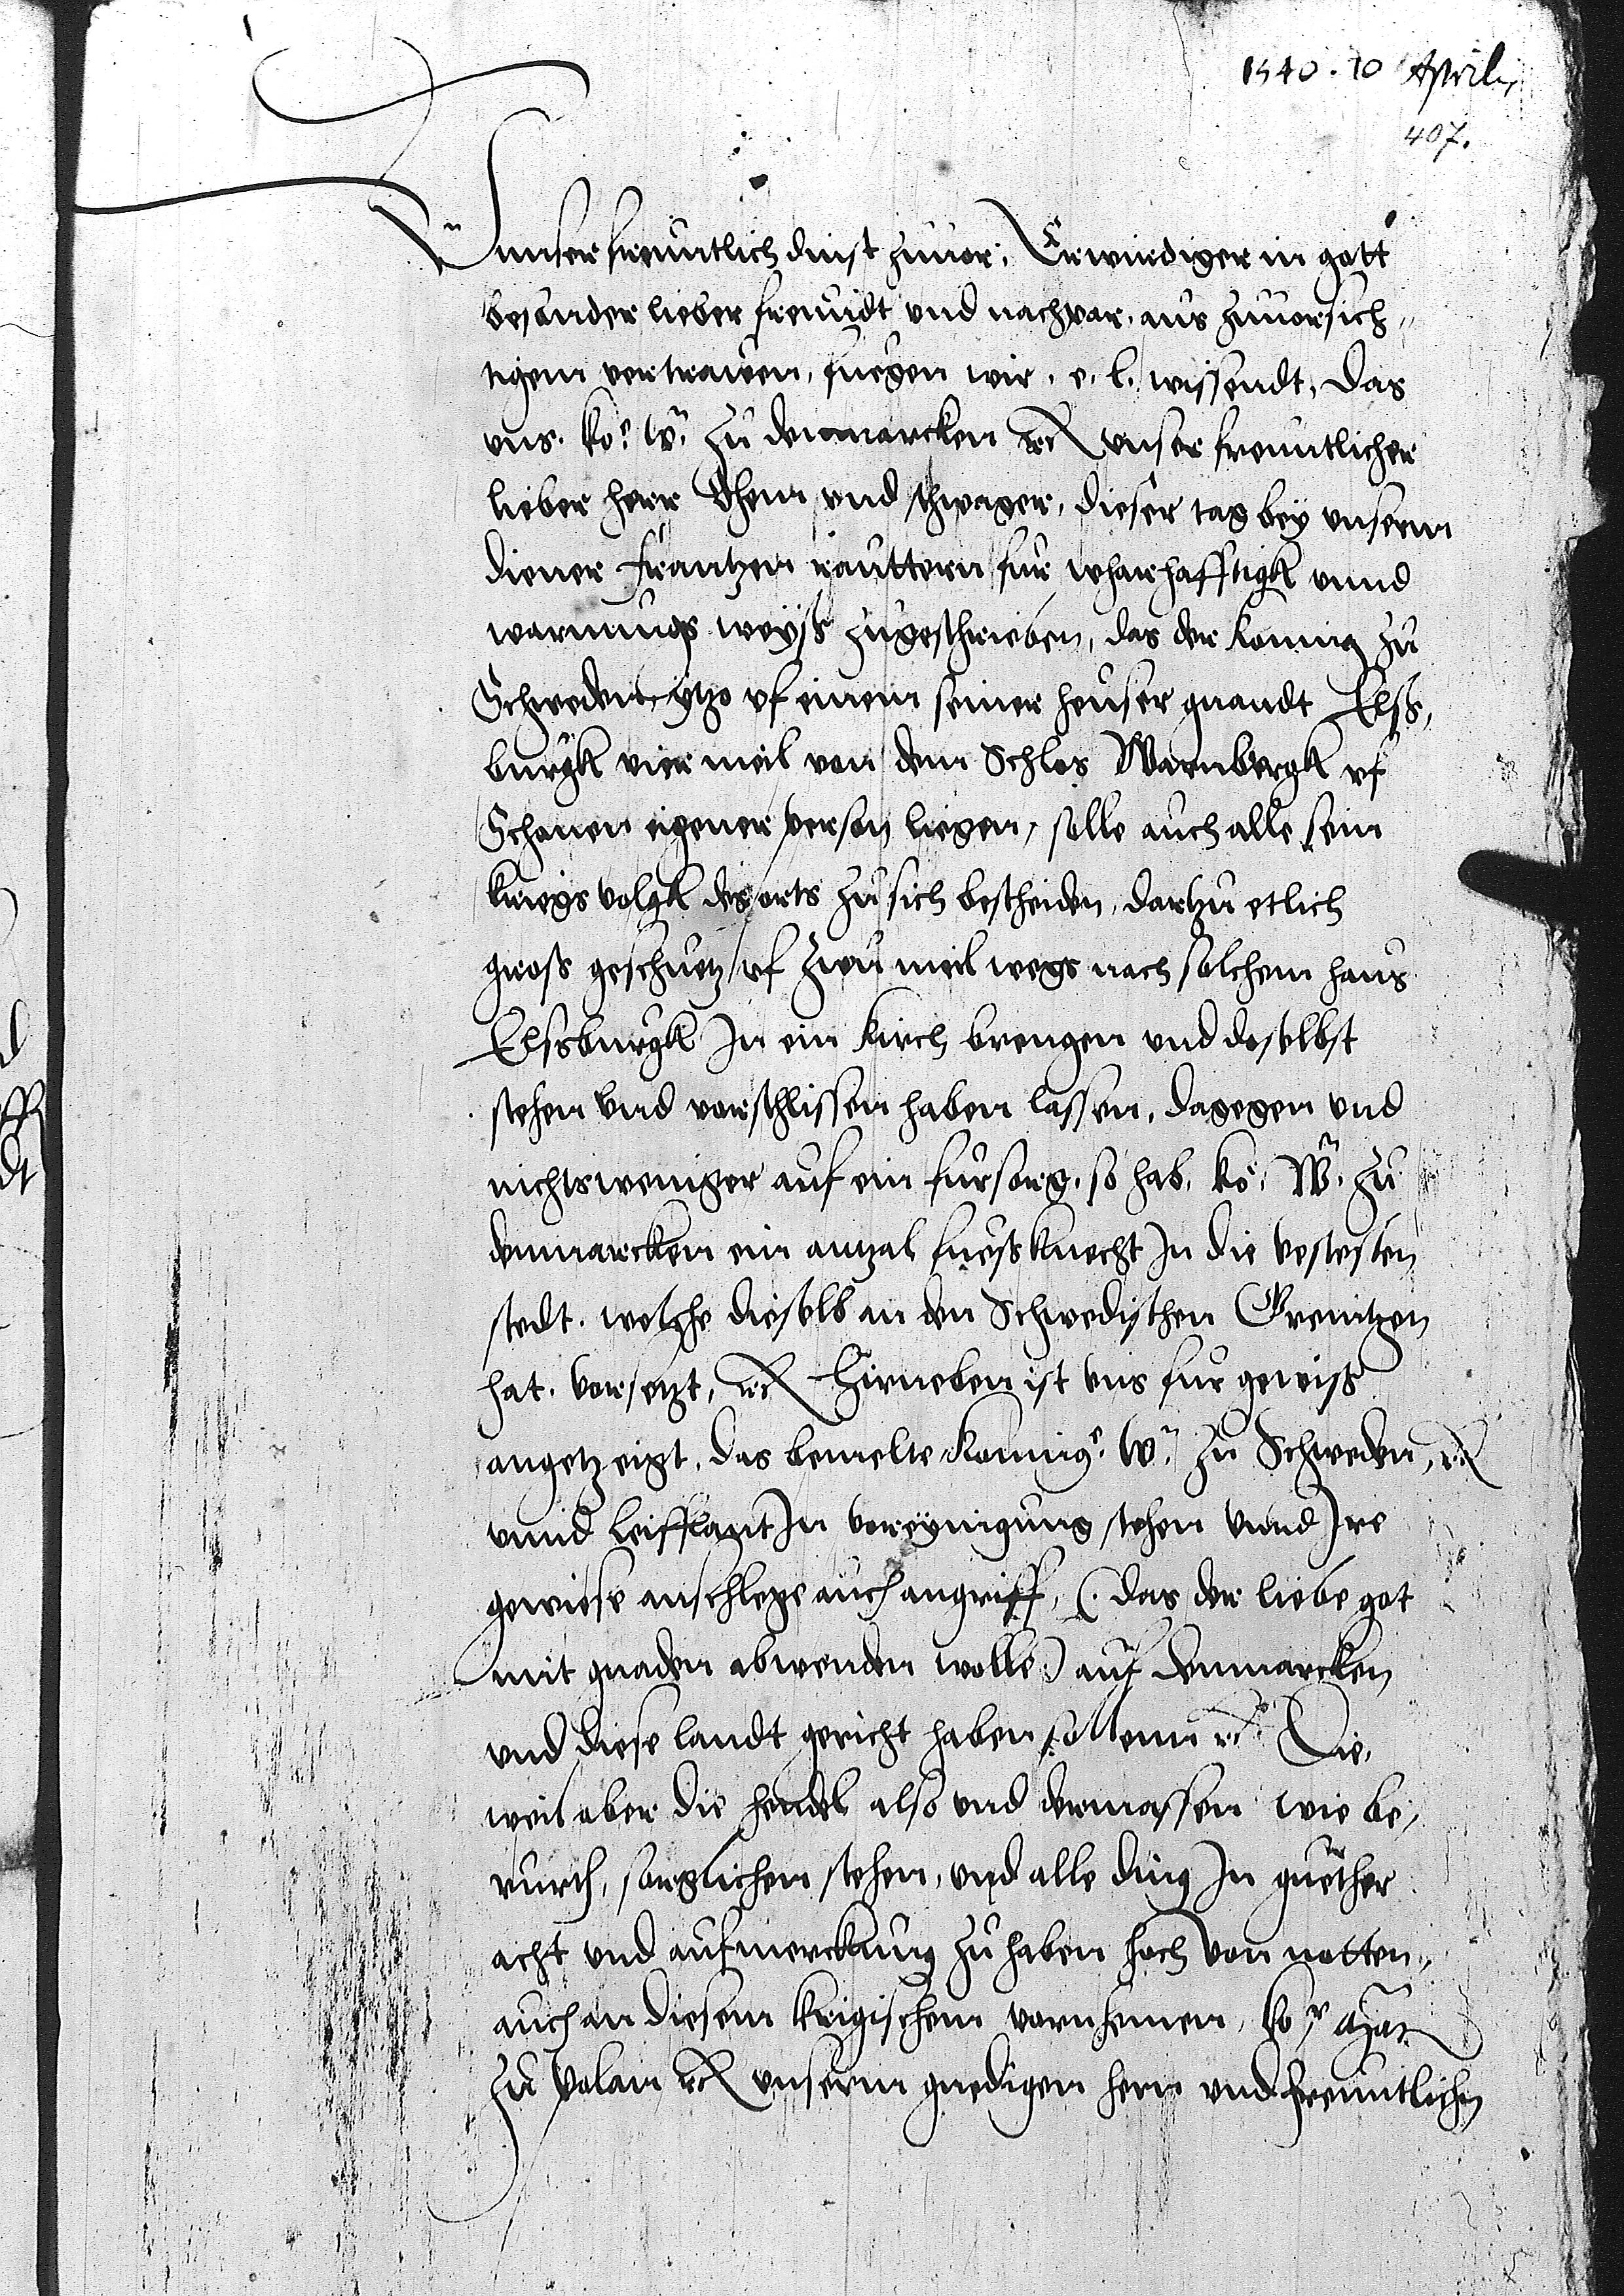 1540. 10 Aprilis
407.
Vnnser freuntlich dinst zuuor. Erwirdiger in gott
besonder lieber freundt vnd nachpar. aus zuuorsich„
tigem vertrawen, fuegen wir. e. l. wissendt, das
vns. ko.r w.r zu denmarcken etc vnser freuntlicher
lieber herr Ohem vnd schwager, dieser tag bey vnserm
diener Frantzen rauttern fur whar hafftigk vnnd
warnungs weyss zugeschrieben, das der konnig zu
Schweden ytzo vf einem seiner heuser gnandt Elss„
burgk vier meil von dem Schlos Warnbergk vf
Schonen eigener person liegen, solle auch alle sein
kriegs volgk des orts zu sich bescheiden, dartzu etlich
gross geschuetz vf zwu meil wegs nach solchem haus
Elssburgk In ein kirch brengen vnd doselbst
stehen vnd vorschlissen haben lassen, dagegen vnd
nichtsweniger auf ein fursorg. so hab. ko. W. zu
denmarcken ein antzal fuessknecht In die vestesten
stedt. welche dieselb an den Schwedischen Grenitzen
hat. vorsetzt, etc Hirneben ist vns fur gewiss
angetzeigt, das bemelte konnig.e W. zu Schweden, etc
vnnd leifflant In voreynigung stehen vnnd Ire
gewiesse anschlege auch angriff, (. das der liebe got
mit gnaden abwenden wolle) auf denmarcken
vnd diese landt gericht haben sollenn etc Die„
weil aber die hendel also vnd dermassen wie be„
rurth, sorglichen stehen, vnd alle ding In guether
acht vnd aufmerckung zu haben hoch von notten„
auch an diesem krigischem vornhemen, ko.r Mat
zu Polan etc vnserm gnedigen hern vnd freuntlichen